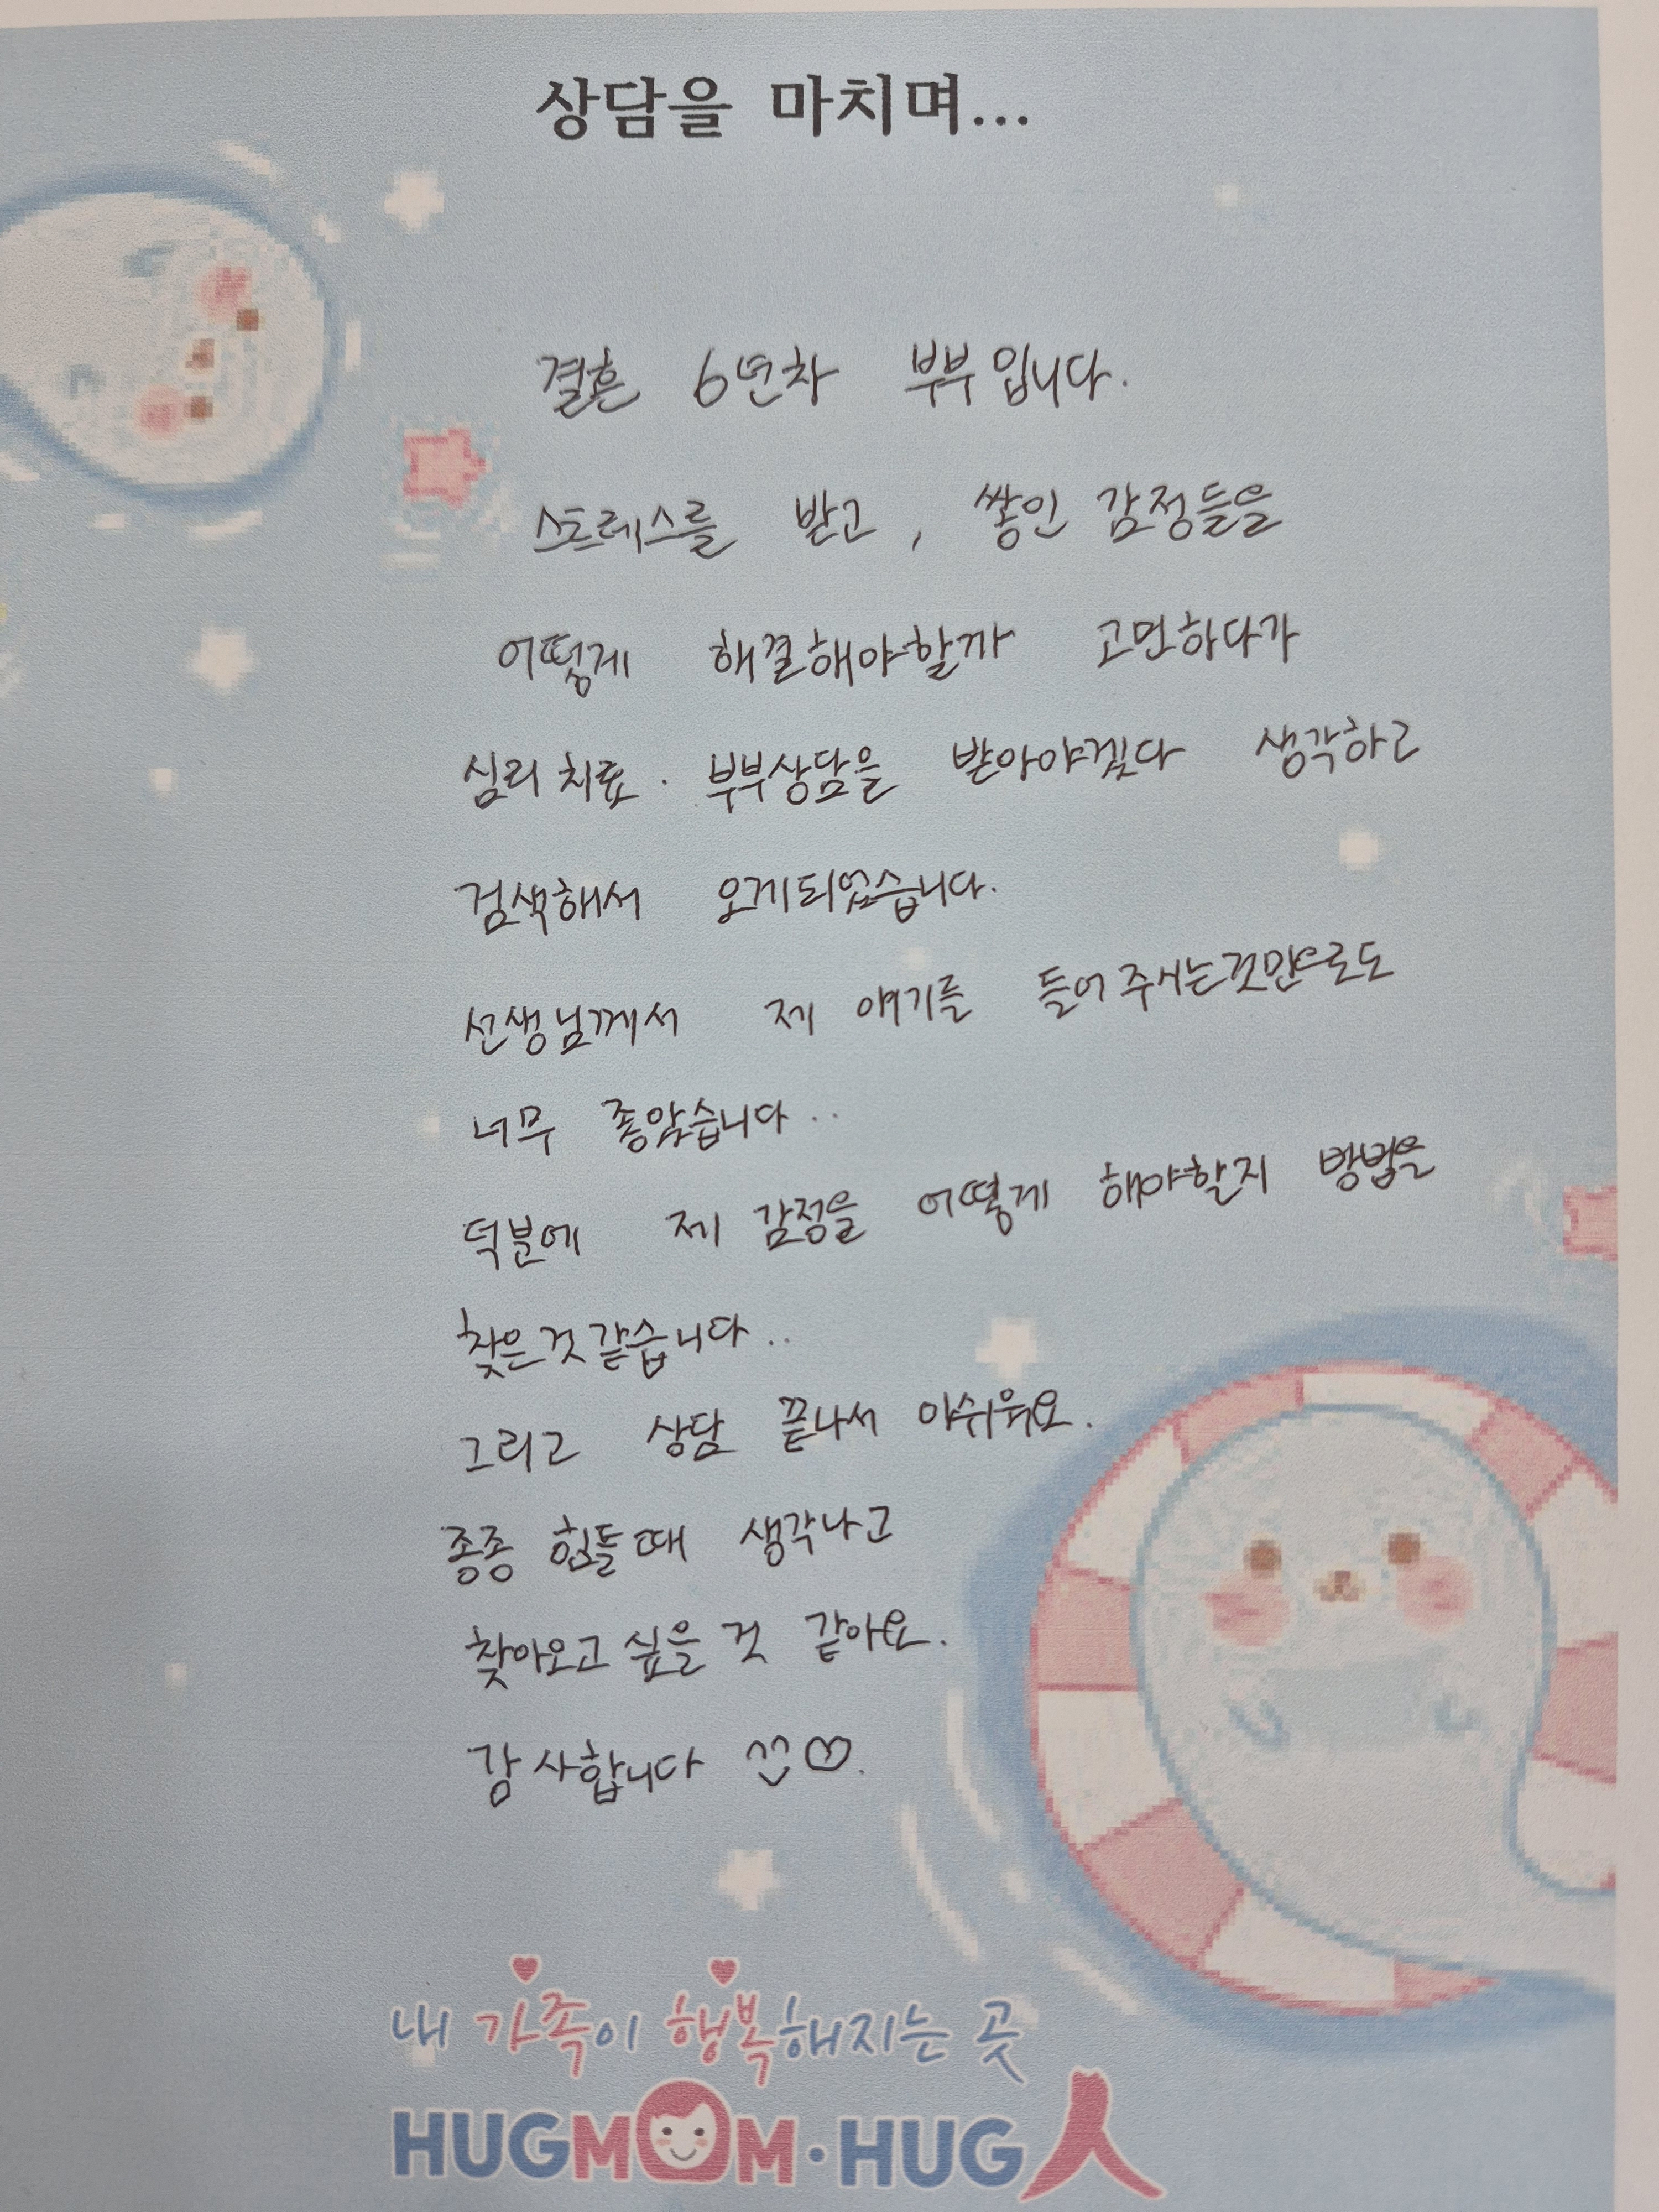 상담을 마치며...
결혼 6년차 부부입니다.
스트레스를 받고, 쌓인 감정들을
어떻게 해결해야할까 고민하다가
심리치료·부부상담을 받아야겠다 생각하고
검색해서 오게되었습니다.
선생님께서 제 얘기를 들어주시는것만으로도
너무 좋았습니다..
덕분에 제 감정을 어떻게 해야할지 방법을
찾은것같습니다..
그리고 상담 끝나서 아쉬워요.
종종 힘들때 생각나고
찾아오고싶을 것 같아요.
감사합니다 ^^♡.
내 가족이 행복해지는 곳
HUGMOM·HUG人